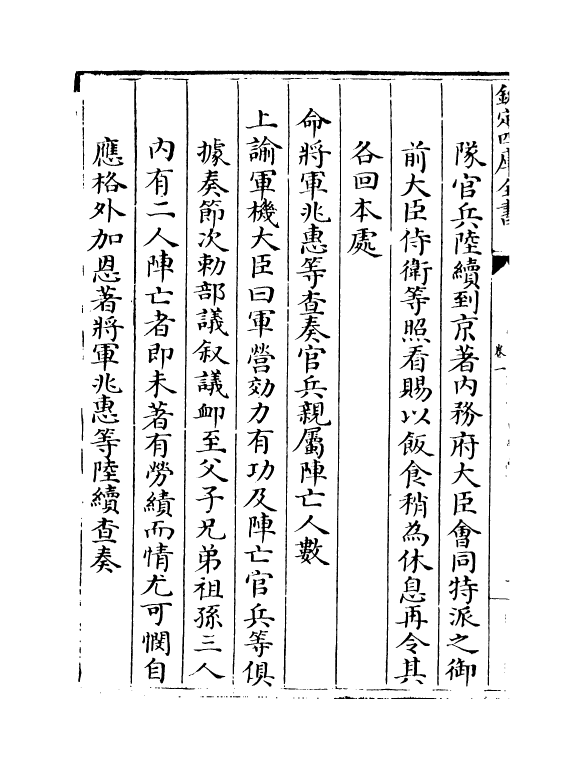 欽定四庫全書
卷一
隊官兵陸續到京著内務府大臣會同特派之御
前大臣侍衛等照看賜以飯食稍為休息再令其
各回本處
命將軍兆惠等查奏官兵親屬陣亡人數
上諭軍機大臣曰軍營効力有功及陣亡官兵等俱
據奏節次勅部議叙議卹至父子兄弟祖孫三人
内有二人陣亡者即未著有勞績而情尤可憫自
應格外加恩著將軍兆惠等陸續查奏